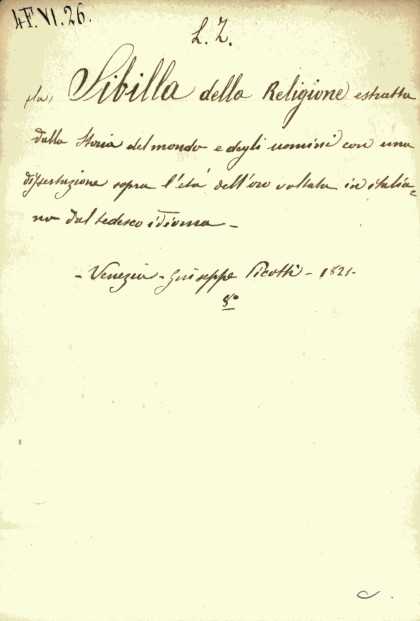 4F.VI.26.
L. Z.
(la) Sibilla della Religione estratta
dalla Storia del mondo e degli uomini con una
dissertazione sopra l'età dell'oro voltata in italia=
no dal tedesco idioma -
- Venezia - Giuseppe Picotti - 1821 -
8°